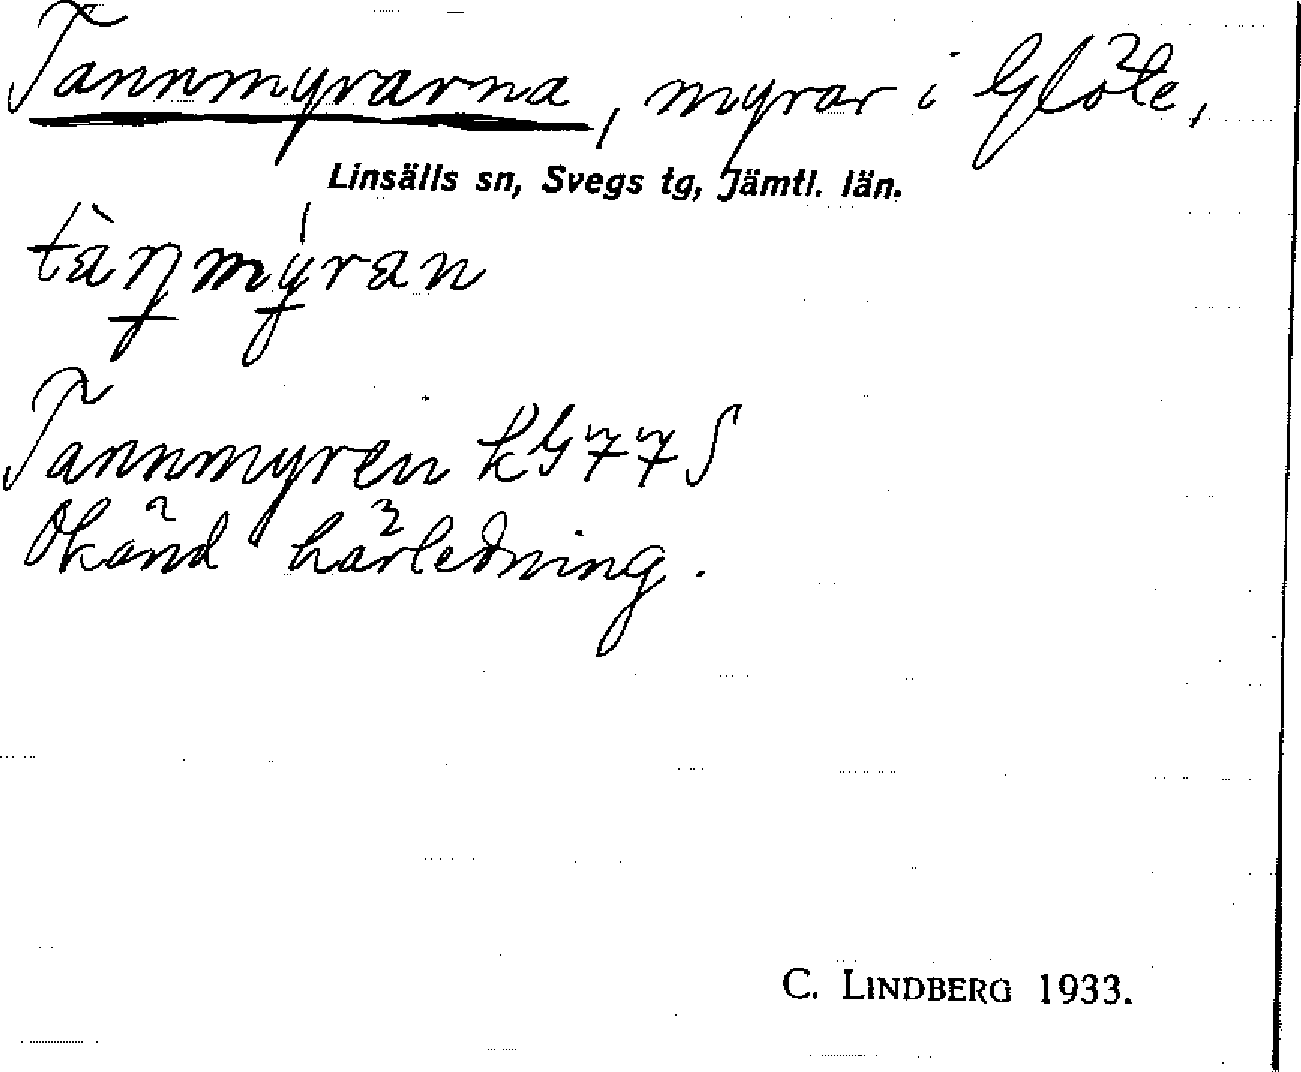 Tannmyrarna, myrar i Glöte,
Linsälls sn, Svegs tg, Jämtl. län.
Tannmyren kG 77 S
Okänd härledning.
C. LINDBERG 1933.